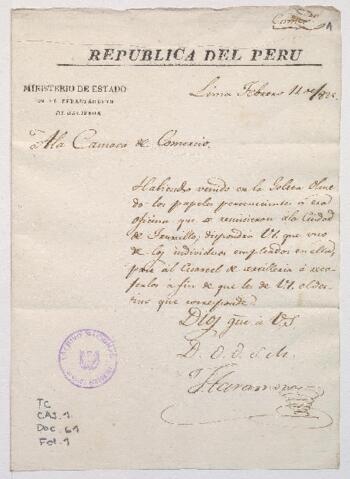 Com.o
1
REPUBLICA DEL PERU
MINISTERIO DE ESTADO
EN EL DEPARTAMENTO
DE HACIENDA
Lima Febrero 11 de
A la Camara de Comercio.
Habiendo venido en la Goleta Olme
do los papeles pertenecientes á esa
oficina que se remitieron a la Ciudad
de Truxillo, dispondrá US. que uno
de los individuos empleados en ella,
pase al Cuartel de artilleria á reco-
jerlos á fin de que les de US. el des-
tino que corresponde.
Dios gue. á US.
TC
CAJ. 1
Doc. 61
Fol. 1